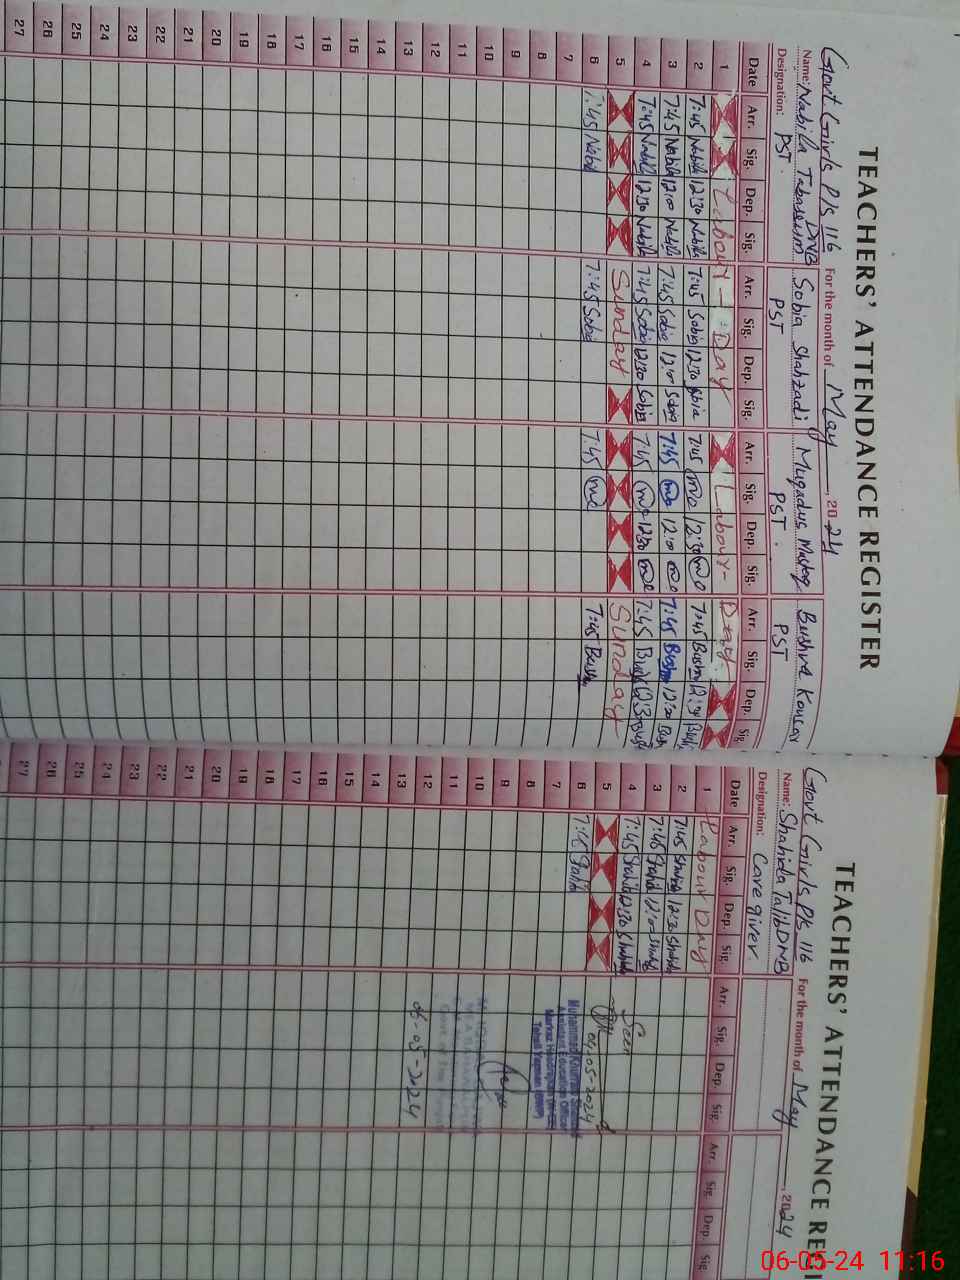 TEACHERS' ATTENDANCE REGISTER
Govt Girls P/s 116 DNB For the month of May, 2024
Name: Nabila Tabassum Sobia Shahzadi Muqadus Mushtaq Bushra Kousar
Designation: PST PST PST PST
Date Arr. Sig. Dep. Sig. Arr. Sig. Dep. Sig. Arr. Sig. Dep. Sig. Arr. Sig. Dep. Sig.
1 Labour - Day Labour - Day
2 7:45 Nabila 12:30 Nabila 7:45 Sobia 12:30 Sobia 7:45 12:30 7:45 Bushra 12:30
3 7:45 Nabila 12:00 Nabila 7:45 Sobia 12:00 Sobia 7:45 12:00 7:45 Bushra 12:00
4 7:45 Nabila 12:30 Nabila 7:45 Sobia 12:30 Sobia 7:45 12:30 7:45 12:30
5 Sunday Sunday
6 7:45 Nabila 7:45 Sobia 7:45 7:45 Bushra
7
8
9
10
11
12
13
14
15
16
17
18
19
20
21
22
23
24
25
26
27
TEACHERS' ATTENDANCE REGI
Govt Girls P/s 116 DNB For the month of May, 2024
Name: Shahida Talib
Designation: Care giver
Date Arr. Sig. Dep. Sig. Arr. Sig. Dep. Sig. Arr. Sig. Dep. Sig.
1 Labour Day
2 7:45 Shahida 12:30 Shahida
3 7:45 Shahida 12:00 Shahida
4 7:45 Shahida 12:30 Shahida Seen
5 04-05-2024
6 7:45 Shahida
Muhammad Khurram Shahzad
Assistant Education Officer
Tehsil Yazman (BWP)
7
8
9
10
11
12
13 06-05-2024
14
15
16
17
18
19
20
21
22
23
24
25
26
27
06-05-24 11:16